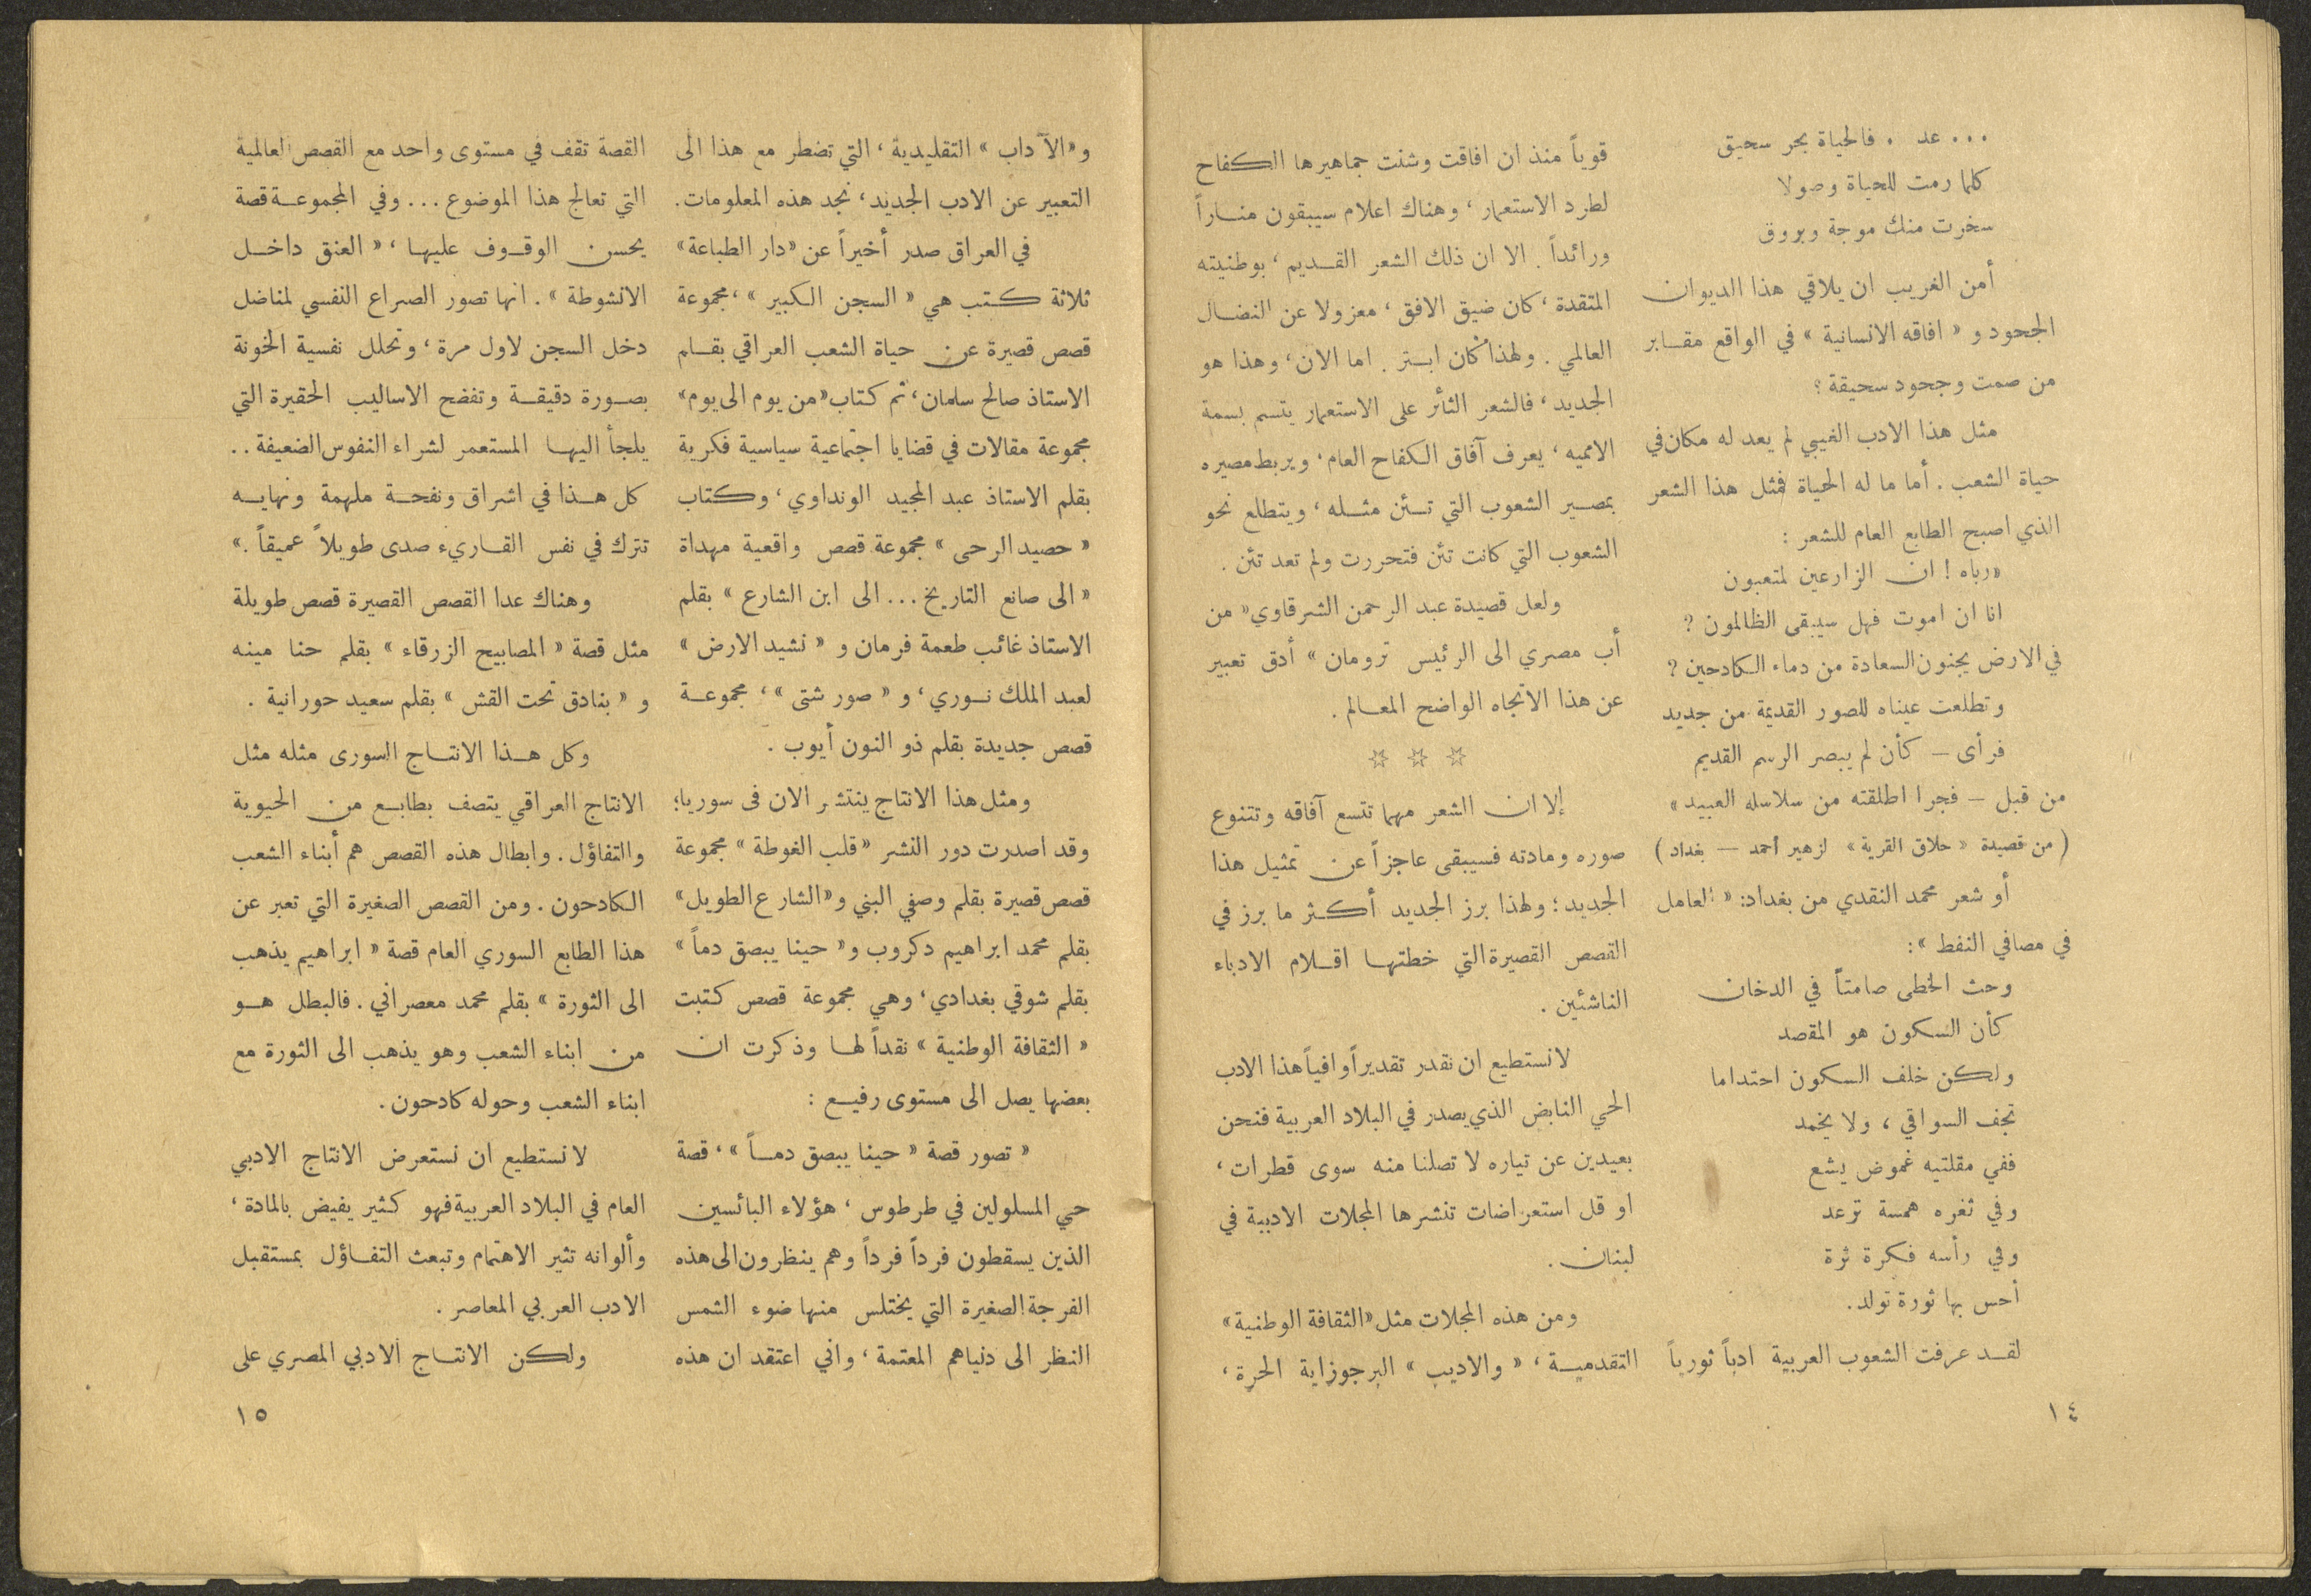 ... عد . فالحياة بحر سحيق
كلما رمت للحياة وصولا
سخرت منك موجة وبروق
أمن الغريب ان يلاقي هذا الديوان
الجحود و « افاقه الانسانية » في الواقع مقابر
من صمت وجحود سحيقة ؟
مثل هذا الادب الغيبي لم يعد له مكان في
حياة الشعب . أما ما له الحياة فمثل هذا الشعر
الذي اصبح الطابع العام للشعر :
«رباه ! ان الزارعين لمتعبون
انا ان اموت فهل سيبقى الظالمون ؟
في الارض يجنون السعادة من دماء الكادحين ؟
وتطلعت عيناه للصور القديمة من جديد
فرأى – كأن لم يبصر الرسم القديم
من قبل – فجرا اطلقته من سلاسله العبيد »
( من قصيدة « حلاق القرية » لزهير أحمد – بغداد )
أو شعر محمد النقدي من بغداد: « العامل
في مصافي النفط » :
وحث الخطى صامتاً في الدخان
كأن السكون هو المقصد
ولكن خلف السكون احتداما
تجف السواقي ، ولا يخمد
ففي مقلتيه غموض يشع
وفي ثغره همسة ترعد
وفي رأسه فكرة ثرة
أحس بها ثورة تولد.
لقد عرفت الشعوب العربية ادباً ثورياً
قوياً منذ ان افاقت وشنت جماهيرها الكفاح
لطرد الاستعمار ، وهناك اعلام سيبقون مناراً
ورائداً . الا ان ذلك الشعر القديم ، بوطنيته
المتقدة ، كان ضيق الافق ، معزولا عن النضال
العالمي . ولهذا كان ابتر . اما الان ، وهذا هو
الجديد ، فالشعر الثائر على الاستعمار يتسم بسمة
الامميه ، يعرف آفاق الكفاح العام ، ويربط مصيره
بمصير الشعوب التي تئن مثله ، ويتطلع نحو
الشعوب التي كانت تئن فتحررت ولم تعد تئن .
ولعل قصيدة عبد الرحمن الشرقاوي « من
أب مصري الى الرئيس ترومان » أدق تعبير
عن هذا الاتجاه الواضح المعالم .
☆ ☆ ☆
إلا ان الشعر مهما تتسع آفاقه وتتنوع
صوره ومادته فسيبقى عاجزاً عن تمثيل هذا
الجديد ؛ ولهذا برز الجديد أكثر ما برز في
القصص القصيرة التي خطتها اقلام الادباء
الناشئين .
لا نستطيع ان نقدر تقديراً وافياً هذا الادب
الحي النابض الذي يصدر في البلاد العربية فنحن
بعيدين عن تياره لا تصلنا منه سوى قطرات ،
او قل استعراضات تنشرها المجلات الادبية في
لبنان .
ومن هذه المجلات مثل «الثقافة الوطنية»
التقدمية ، « والاديب » البرجوزاية الحرة ،
١٤
و «الآداب » التقليدية ، التي تضطر مع هذا الى
التعبير عن الادب الجديد ، نجد هذه المعلومات .
في العراق صدر أخيراً عن «دار الطباعة»
ثلاثة كتب هي « السجن الكبير » ، مجموعة
قصص قصيرة عن حياة الشعب العراقي بقلم
الاستاذ صالح سلمان ، ثم كتاب «من يوم الى يوم»
مجموعة مقالات في قضايا اجتماعية سياسية فكرية
بقلم الاستاذ عبد المجيد الونداوي ، وكتاب
« حصيد الرحى » مجموعة قصص واقعية مهداة
« الى صانع التاريخ ... الى ابن الشارع » بقلم
الاستاذ غائب طعمة فرمان و « نشيد الارض »
لعبد الملك نوري ، و « صور شتى » ، مجموعة
قصص جديدة بقلم ذو النون أيوب .
ومثل هذا الانتاج ينتشر الان في سوريا ؛
وقد اصدرت دور النشر « قلب الغوطة » مجموعة
قصص قصيرة بقلم وصفي البني و «الشارع الطويل»
بقلم محمد ابراهيم دكروب و « حينا يبصق دماً »
بقلم شوقي بغدادي ، وهي مجموعة قصص كتبت
« الثقافة الوطنية » نقداً لها وذكرت ان
بعضها يصل الى مستوى رفيع :
« تصور قصة « حينا يبصق دماً » ، قصة
حي المسلولين في طرطوس ، هؤلاء البائسين
الذين يسقطون فرداً فرداً وهم ينظرون الى هذه
الفرجة الصغيرة التي يختلس منها ضوء الشمس
النظر الى دنياهم المعتمة ، واني اعتقد ان هذه
القصة تقف في مستوى واحد مع القصص العالمية
التي تعالج هذا الموضوع ... وفي المجموعة قصة
يحسن الوقوف عليها ، « العنق داخل
الانشوطة » . انها تصور الصراع النفسي لمناضل
دخل السجن لاول مرة ، وتحلل نفسية الخونة
بصورة دقيقة وتفضح الاساليب الحقيرة التي
يلجأ اليها المستعمر لشراء النفوس الضعيفة . .
كل هذا في اشراق ونفحة ملهمة ونهايه
تترك في نفس القاريء صدى طويلاً عميقاً .»
وهناك عدا القصص القصيرة قصص طويلة
مثل قصة « المصابيح الزرقاء » بقلم حنا مينه
و « بنادق تحت القش » بقلم سعيد حورانية .
وكل هذا الانتاج السورى مثله مثل
الانتاج العراقي يتصف بطابع من الحيوية
والتفاؤل . وابطال هذه القصص هم أبناء الشعب
الكادحون . ومن القصص الصغيرة التي تعبر عن
هذا الطابع السوري العام قصة « ابراهيم يذهب
الى الثورة » بقلم محمد معصراني . فالبطل هو
من ابناء الشعب وهو يذهب الى الثورة مع
ابناء الشعب وحوله كادحون .
لا نستطيع ان نستعرض الانتاج الادبي
العام في البلاد العربية فهو كثير يفيض بالمادة ،
وألوانه تثير الاهتمام وتبعث التفاؤل بمستقبل
الادب العربي المعاصر .
ولكن الانتاج الادبي المصري على
١٥